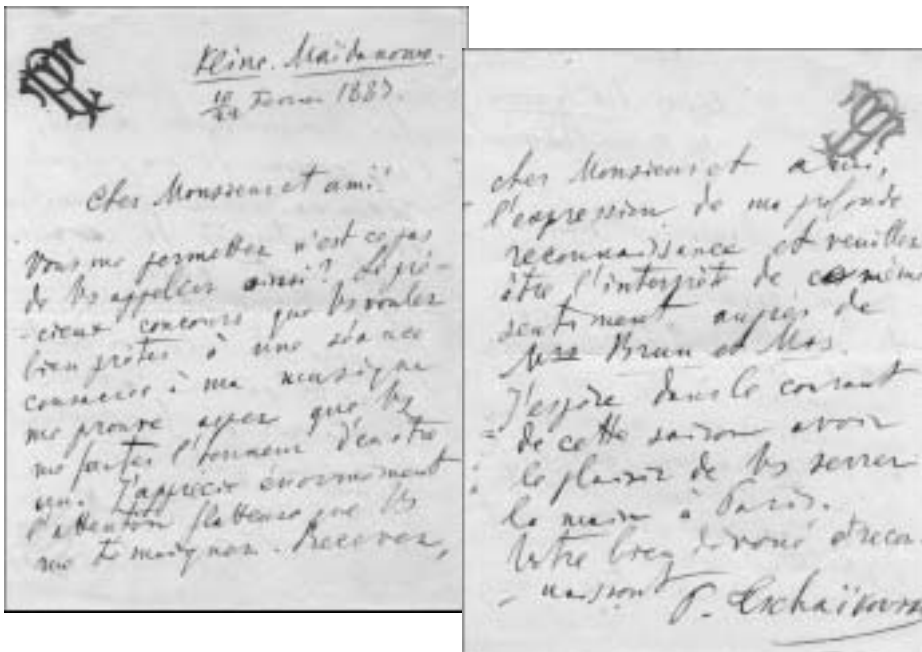 Kline. Maïdanowo.
10/22 Fevrier 1887.
Cher Monsieur et ami!
Vous me permettez n'est ce pas
de Vs appeller ainsi? Le pré-
-cieux concours que Vs voulez
bien prêter à une séance
consacrée à ma musique
me prouve assez que Vs
me faites l'honneur d'en être
un. J'apprecie énormément
l'attention flatteuse que Vs
me témoignez. Recevez,
cher Monsieur et ami,
l'expression de ma profonde
reconnaissance et veuillez
être l'interprète de ce même
sentiment auprès de
Mrs Brun et Mas.
J'espère dans le courant
de cette saison avoir
le plaisir de Vs serrer
la main à Paris.
Votre bien dévoué et recon-
-naissant
P. Tschaïkovsky